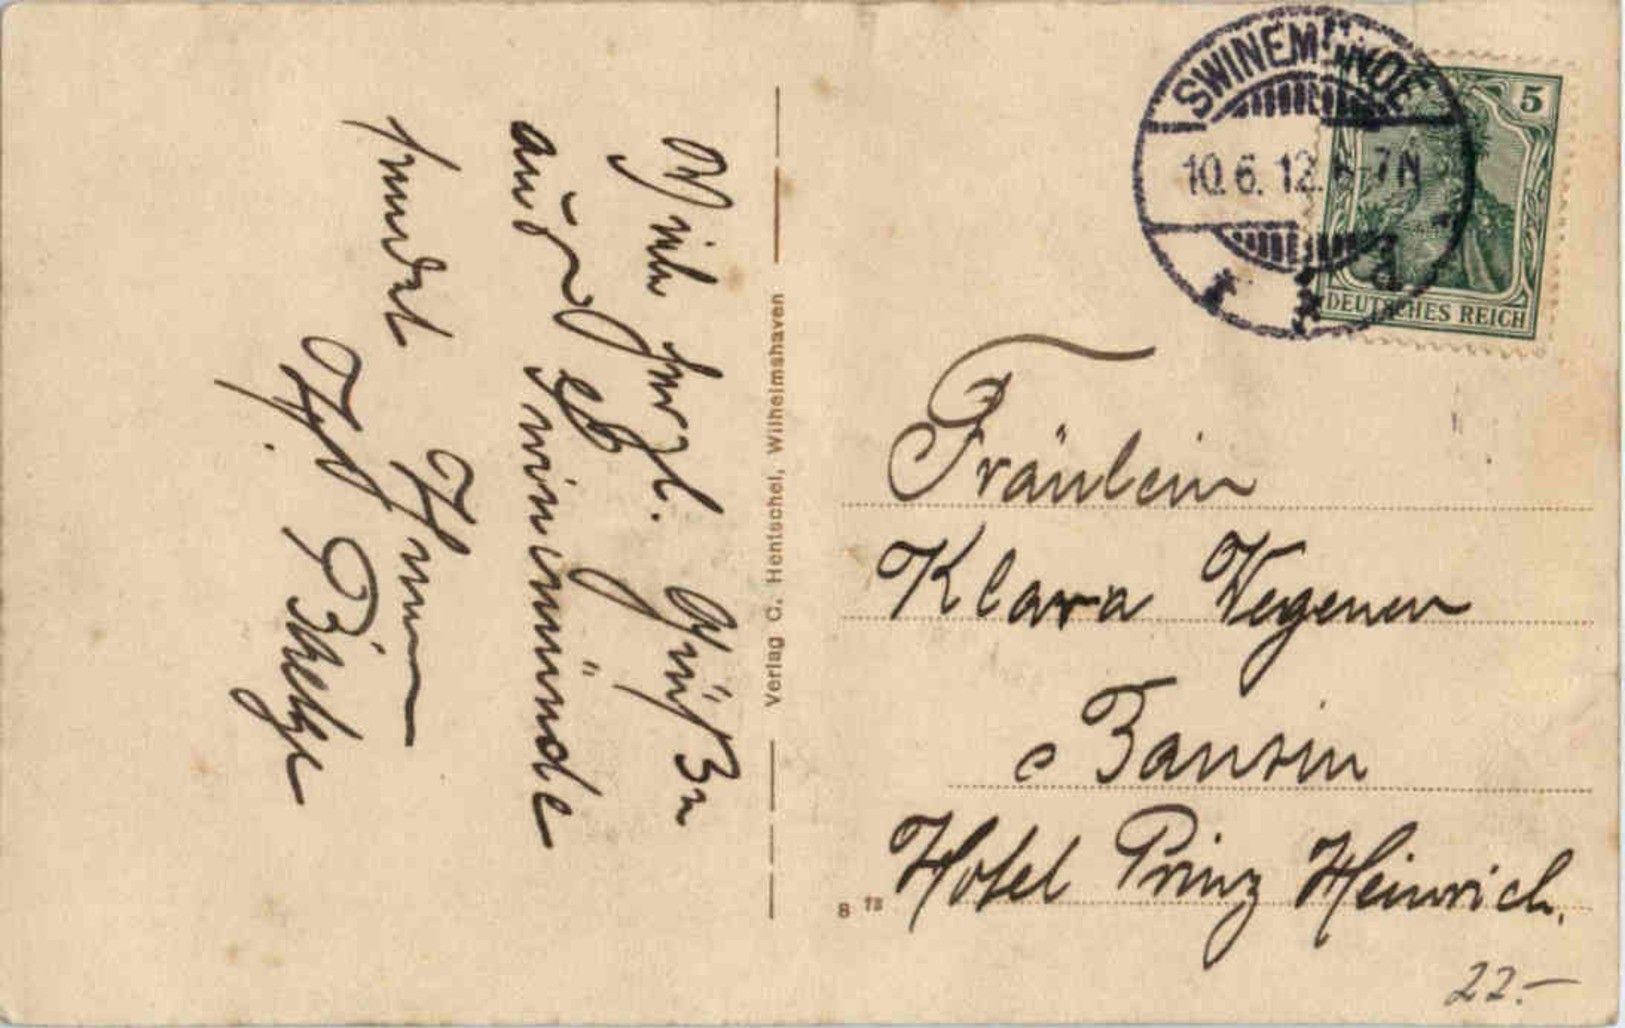 SWINEMÜNDE
10.6.12. 6-7N
d
5
DEUTSCHES REICH
Fräulein
Klara Wegener
Bansin
Hotel Prinz Heinrich.
22.-
8 78
Verlag C. Hentschel, Wilhelmshaven
Viele herzl. Grüße
aus Swinemünde
sendet Ihnen
Ihr